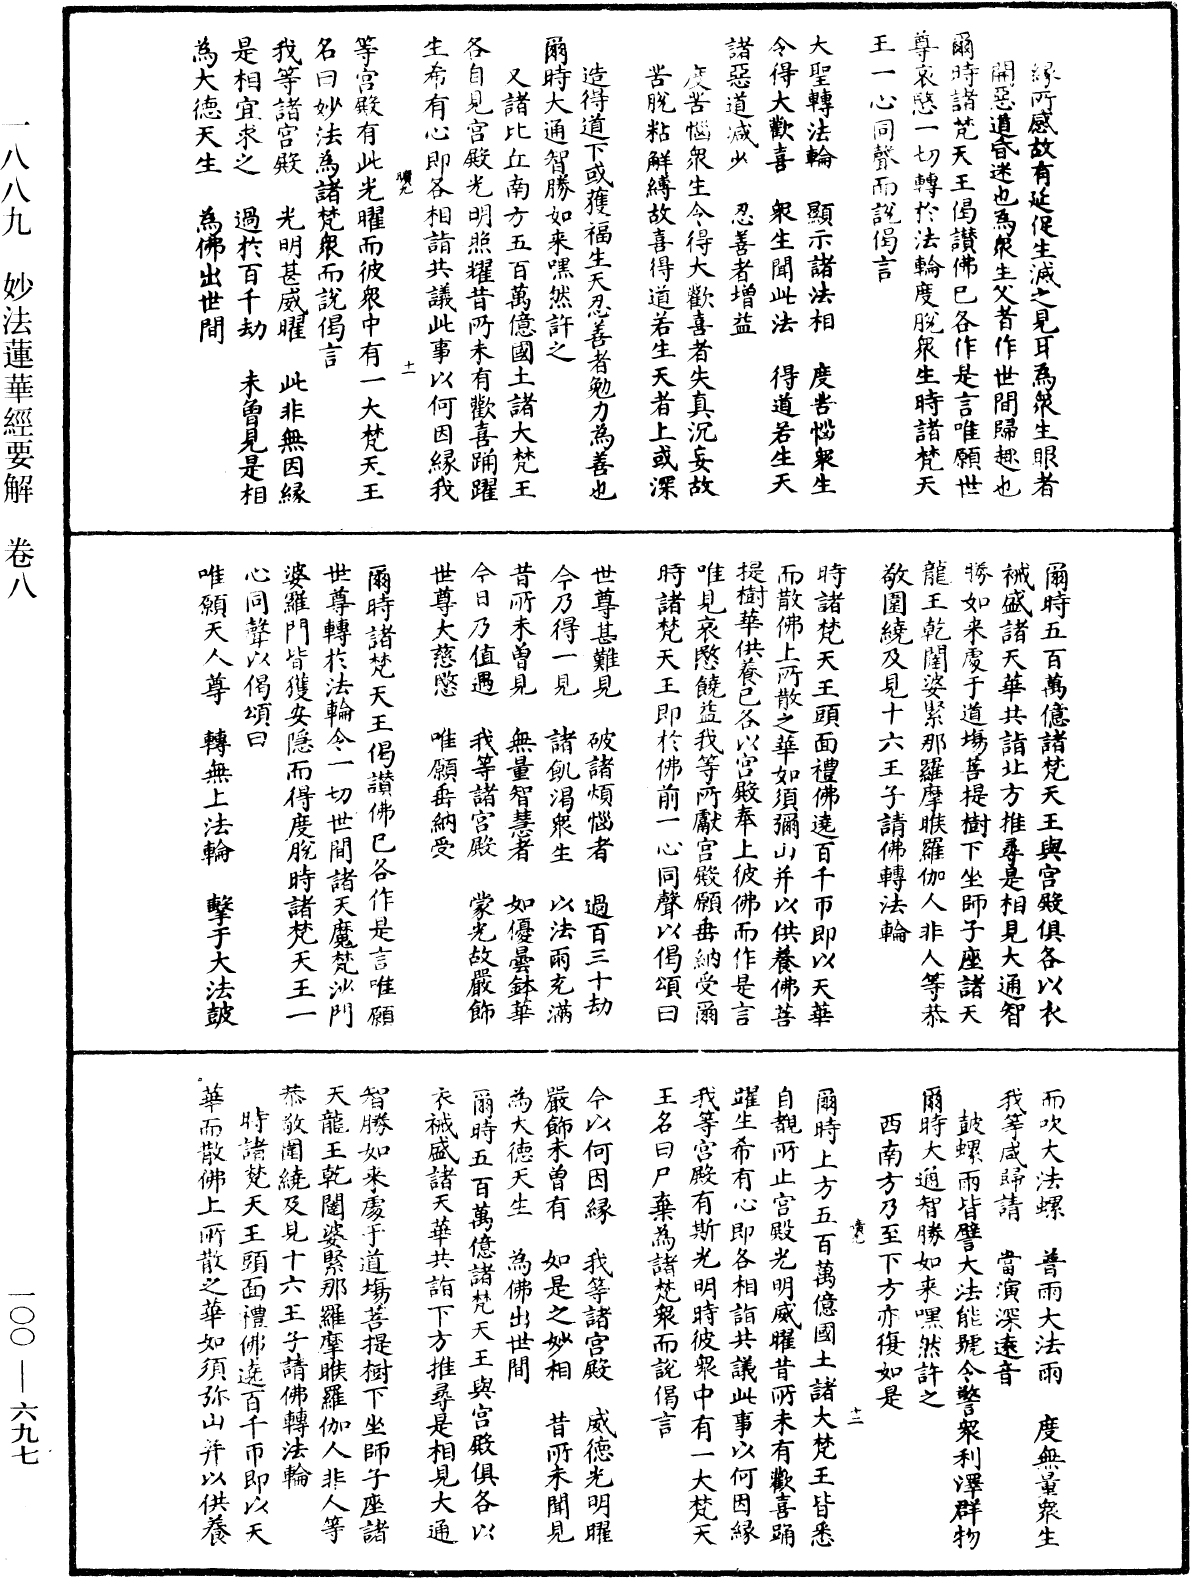 緣所感故有延促生滅之見耳為衆生眼者
開惡道昏迷也為衆生父者作世間歸趣也
爾時諸梵天王偈讃佛已各作是言唯願世
尊哀愍一切轉於法輪度脫衆生時諸梵天
王一心同聲而說偈言
大聖轉法輪　顯示諸法相　度苦惱衆生
令得大歡喜　衆生聞此法　得道若生天
諸惡道減少　忍善者增益
度苦惱衆生令得大歡喜者失真沉妄故
苦脫粘解縛故喜得道若生天者上或深
造得道下或獲福生天忍善者勉力為善也
爾時大通智勝如来嘿然許之
又諸比丘南方五百萬億國土諸大梵王
各自見宮殿光明照耀昔所未有歡喜踊躍
生希有心即各相詣共議此事以何因緣我
十一
等宮殿有此光曜而彼衆中有一大梵天王
名曰妙法為諸梵衆而說偈言
我等諸宮殿　光明甚威曜　此非無因緣
是相宜求之　過於百千劫　未曾見是相
為大德天生　為佛出世間
爾時五百萬億諸梵天王與宮殿俱各以衣
祴盛諸天華共詣北方推尋是相見大通智
勝如来處于道場菩提樹下坐師子座諸天
龍王乾闥婆緊那羅摩睺羅伽人非人等恭
敬圍繞及見十六王子請佛轉法輪
時諸梵天王頭面禮佛遶百千帀即以天華
而散佛上所散之華如須彌山并以供養佛菩
提樹華供養已各以宮殿奉上彼佛而作是言
唯見哀愍饒益我等所獻宮殿願垂納受爾
時諸梵天王即於佛前一心同聲以偈頌曰
世尊甚難見　破諸煩惱者　過百三十劫
今乃得一見　諸飢渴衆生　以法雨充滿
昔所未曾見　無量智慧者　如優曇鉢華
今日乃值遇　我等諸宮殿　蒙光故嚴飾
世尊大慈愍　唯願垂納受
爾時諸梵天王偈讃佛已各作是言唯願
世尊轉於法輪令一切世間諸天魔梵沙門
婆羅門皆獲安隱而得度脫時諸梵天王一
心同聲以偈頌曰
唯願天人尊　轉無上法輪　擊于大法鼓
而吹大法螺　普雨大法雨　度無量衆生
我等咸歸請　當演深遠音
鼓螺雨皆譬大法能號令警衆利澤群物
爾時大通智勝如来嘿然許之
西南方乃至下方亦復如是
十二
爾時上方五百萬億國土諸大梵王皆悉
自覩所止宮殿光明威曜昔所未有歡喜踊
躍生希有心即各相詣共議此事以何因緣
我等宮殿有斯光明時彼衆中有一大梵天
王名曰尸棄為諸梵衆而說偈言
今以何因緣　我等諸宮殿　威德光明曜
嚴飾未曾有　如是之妙相　昔所未聞見
為大德天生　為佛出世間
爾時五百萬億諸梵天王與宮殿俱各以
衣祴盛諸天華共詣下方推尋是相見大通
智勝如来處于道場菩提樹下坐師子座諸
天龍王乾闥婆緊那羅摩睺羅伽人非人等
恭敬圍繞及見十六王子請佛轉法輪
時諸梵天王頭面禮佛遶百千帀即以天
華而散佛上所散之華如須弥山并以供養
一八八九　妙法蓮華經要解　卷八
一〇〇—六九七